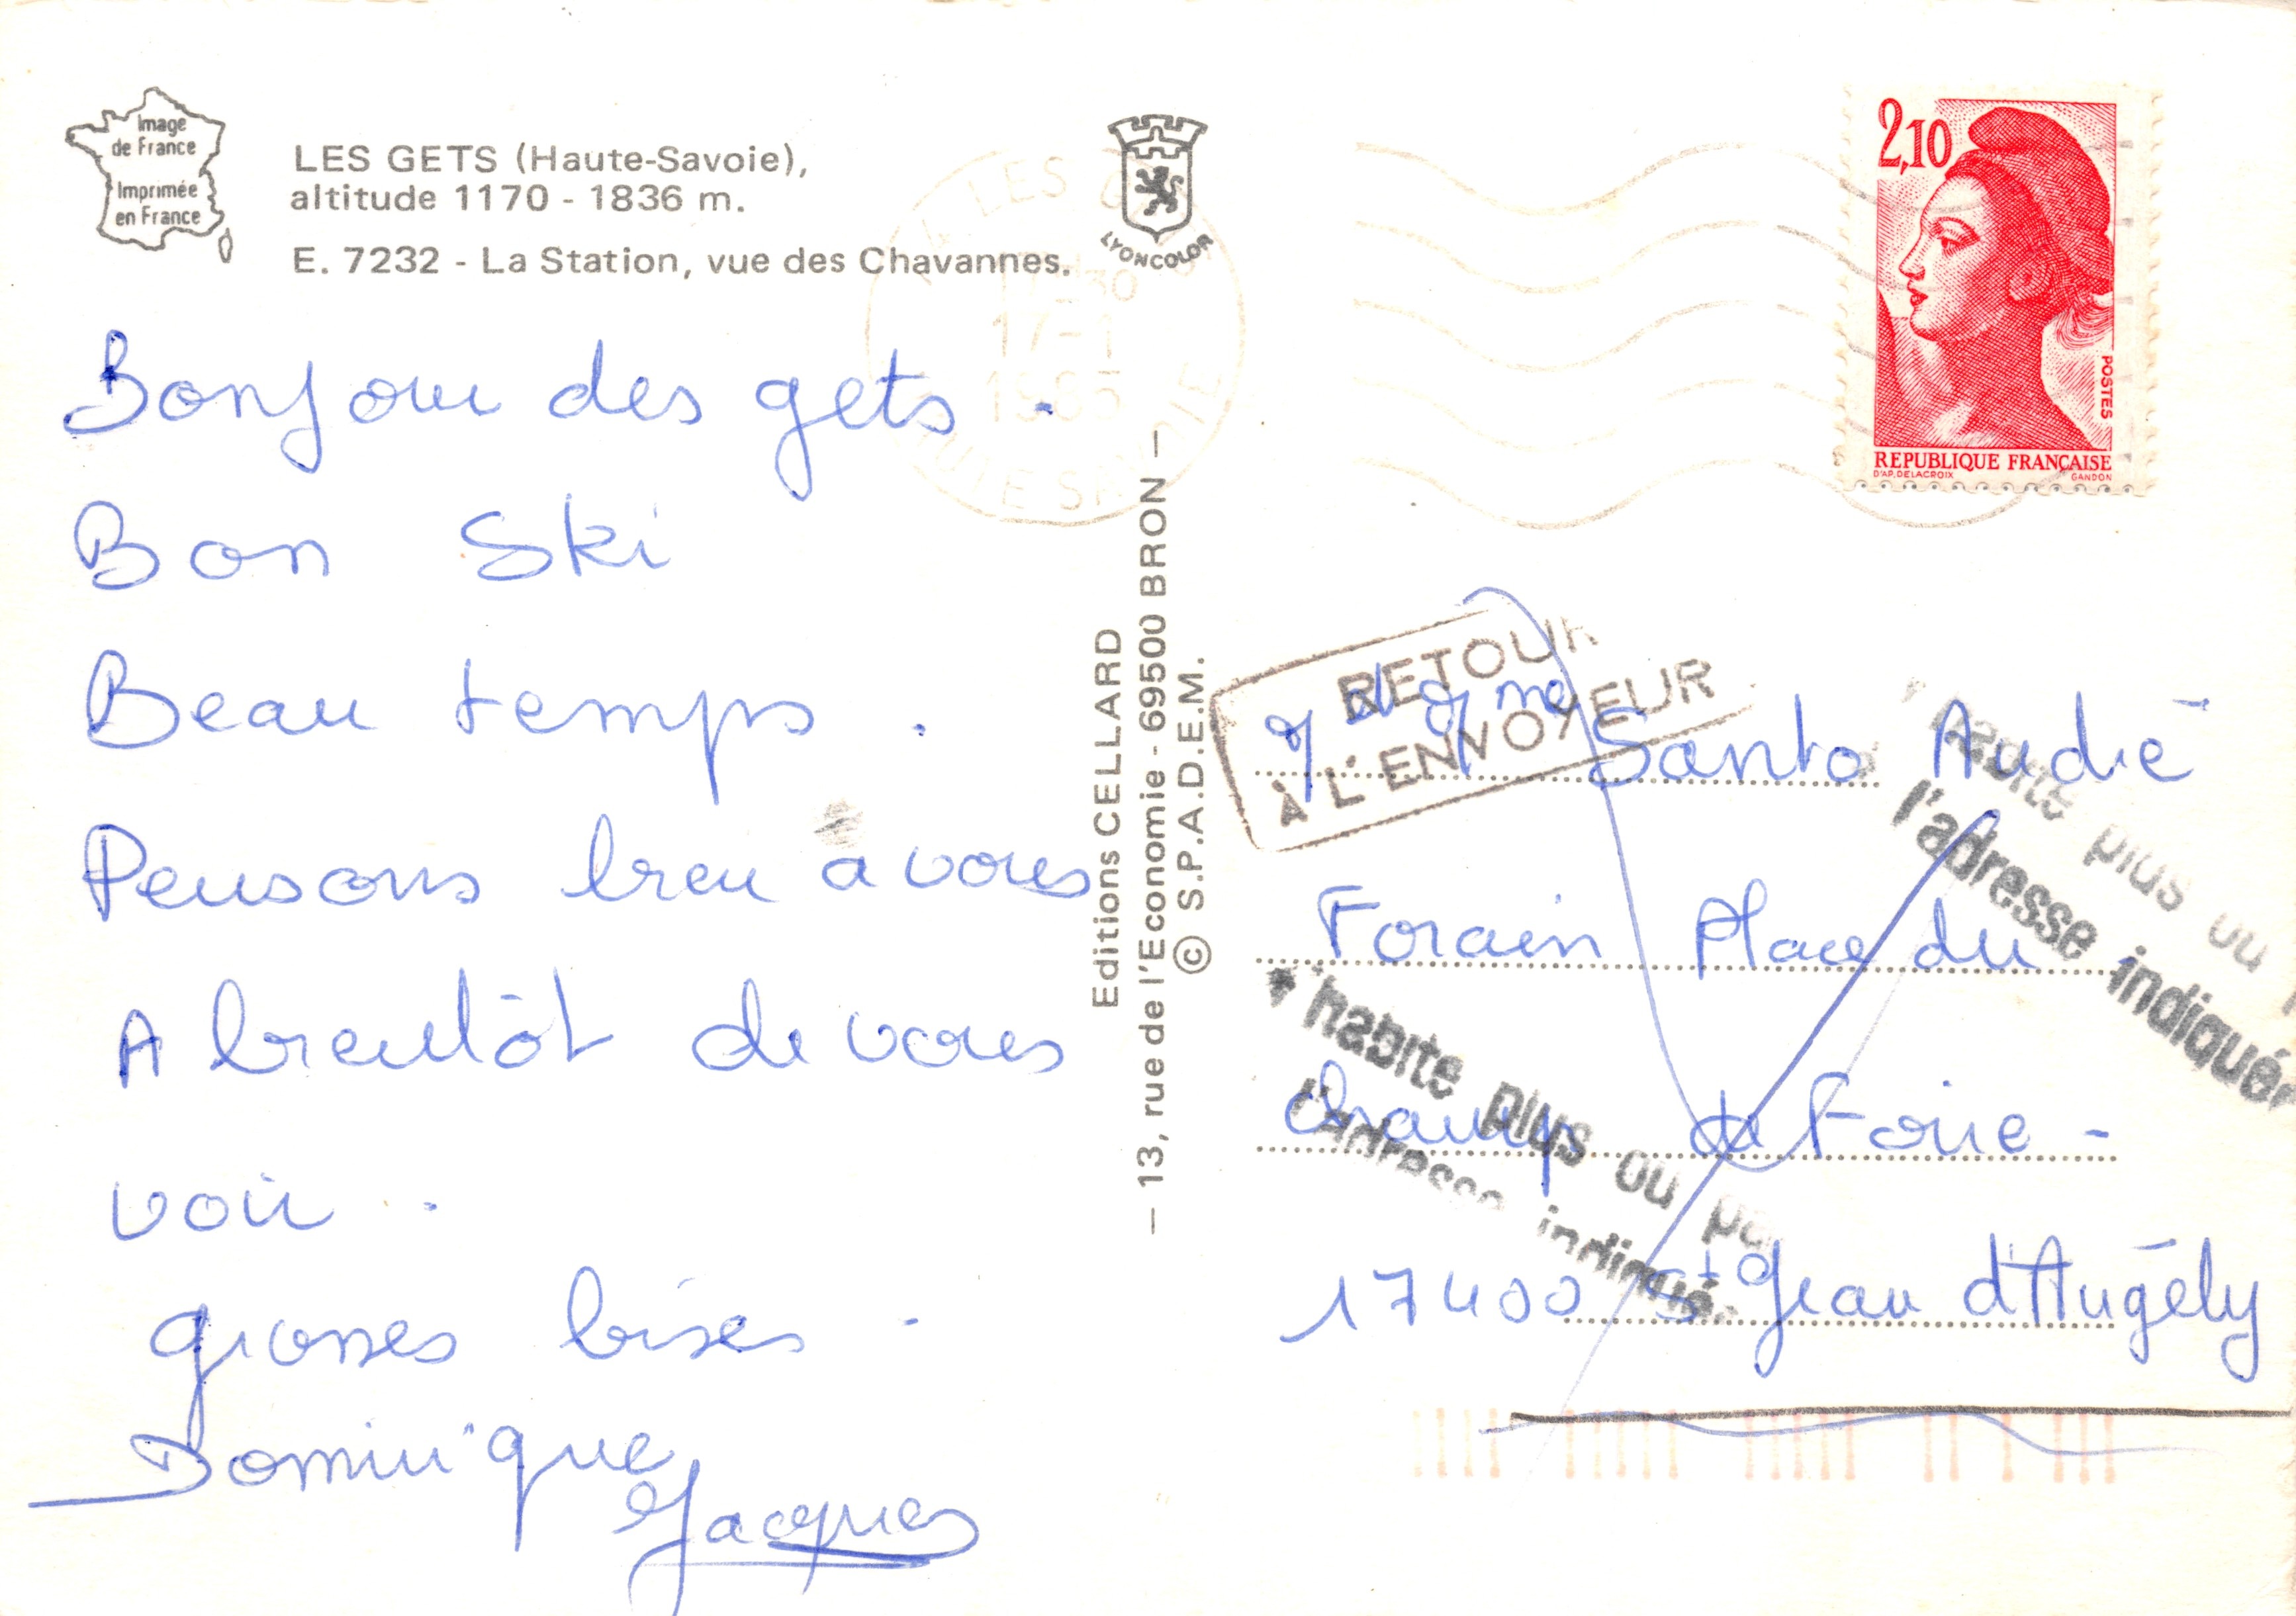 Image
de France
Imprimée
en France
LES GETS (Haute-Savoie),
altitude 1170 - 1836 m.
E. 7232 - La Station, vue des Chavannes.
LYONCOLOR
Bonjour des gets.
Bon Ski
Beau temps.
Pensons bien a vous
A bientôt de vous
voir.
grosses bises.
Dominique
Jacques
Editions CELLARD
— 13, rue de l'Economie - 69500 BRON —
© S.P.A.D.E.M.
2,10
POSTES
REPUBLIQUE FRANÇAISE
D'AP. DELACROIX GANDON
RETOUR
À L'ENVOYEUR
Santo André
Forain Place du
Champ de Foire -
17400 St Jean d'Angély
habite plus ou
l'adresse indiquée
habite plus ou pas
l'adresse indiquée